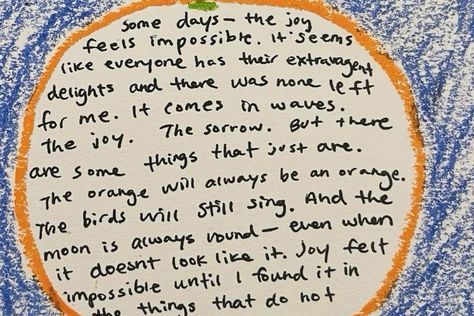 some days— the joy
feels impossible. It seems
like everyone has their extravagent
delights and there was none left
for me. It comes in waves.
The joy. The sorrow. But there
are some things that just are.
The orange will always be an orange.
The birds will still sing. And the
moon is always round— even when
it doesnt look like it. Joy felt
impossible until I found it in
the things that do not